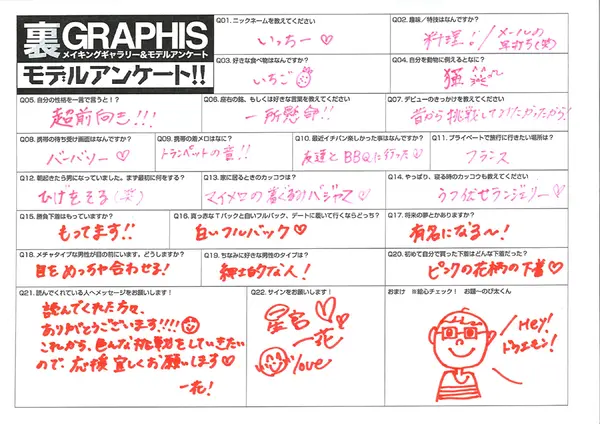 裏GRAPHIS
メイキングギャラリー&モデルアンケート
モデルアンケート!!
Q01. ニックネームを教えてください
いっちー♡
Q02. 趣味/特技はなんですか?
料理!/メールの早打ち(笑)
Q03. 好きな食べ物はなんですか?
いちご
Q04. 自分を動物に例えるとなに?
Q05. 自分の性格を一言で言うと!?
超前向き!!!
Q06. 座右の銘、もしくは好きな言葉を教えてください
一所懸命!!
Q07. デビューのきっかけを教えてください
昔から挑戦してみたかったから!
Q08. 携帯の待ち受け画面はなんですか?
バーバリー♡
Q09. 携帯の着メロはなに?
トランペットの音!!
Q10. 最近イチバン楽しかった事はなんですか?
友達とBBQに行った♡
Q11. プライベートで旅行に行きたい場所は?
フランス
Q12. 朝起きたら男になっていました。まず最初に何をする?
ひげをそる(笑)
Q13. 家に居るときのカッコウは?
マイメロの着ぐるみパジャマ♡
Q14. やっぱり、寝る時のカッコウも教えてください
うつ伏せランジェリー♡
Q15. 勝負下着はもっていますか?
もってます!!
Q16. 真っ赤なTバックと白いフルバック、デートに履いて行くならどっち?
白いフルバック♡
Q17. 将来の夢とかありますか?
有名になる〜!
Q18. メチャタイプな男性が目の前にいます。どうしますか?
目をめっちゃ合わせる!
Q19. ちなみに好きな男性のタイプは?
紳士的な人!
Q20. 初めて自分で買った下着はどんな下着だった?
ピンクの花柄の下着♡
Q21. 読んでくれている人へメッセージをお願いします!
読んでくれた方々、
ありがとうございます!!!!
これから、色んな挑戦をしていきたい
ので、応援宜しくお願いします♡
一花!
Q22. サインをお願いします!
星宮
一花
love
おまけ ※絵心チェック! お題…のび太くん
Hey!
ドラエモン!